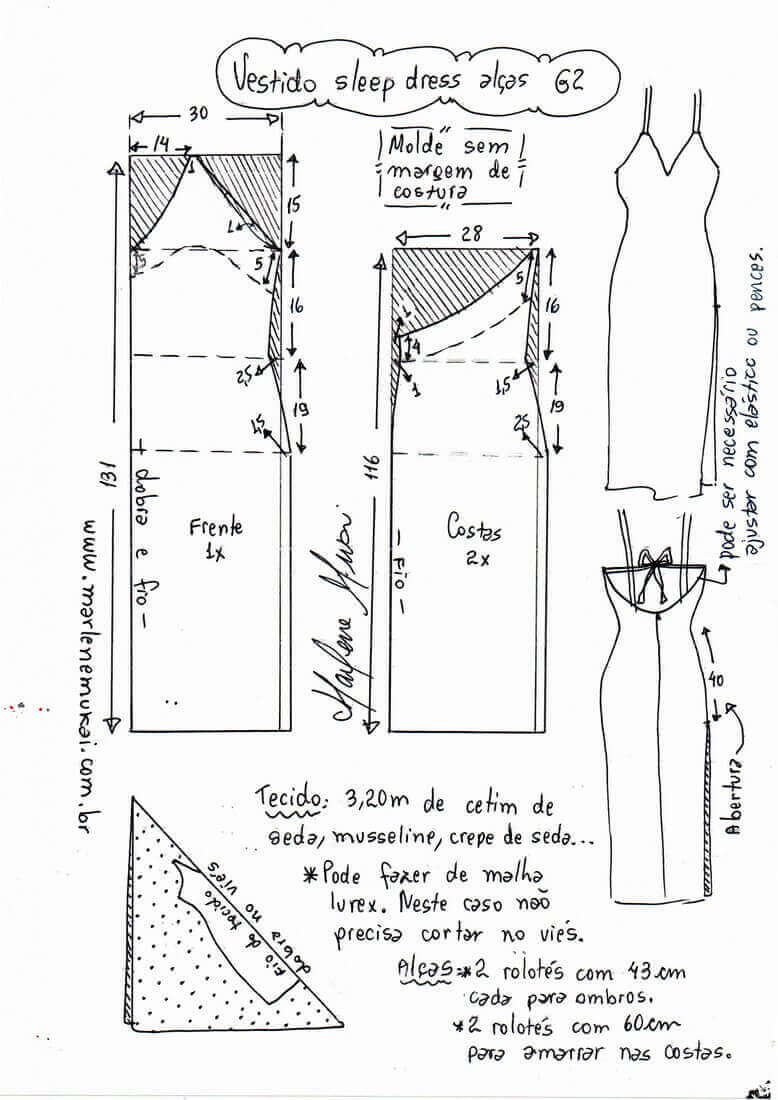 Vestido sleep dress alças G2
Molde sem
margem de
costura
30
14
1
1
15
5
5
16
2,5
19
1,5
131
dobra e fio
Frente
1x
28
5
1
4
16
1
1,5
19
2,5
116
Fio
Costas
2x
Marlene Mukai
www.marlenemukai.com.br
pode ser necessário
ajustar com elástico ou pences.
40
Abertura
Tecido: 3,20m de cetim de
seda, musseline, crepe de seda...
*Pode fazer de malha
lurex. Neste caso não
precisa cortar no viés.
Alças:*2 rolotés com 43cm
cada para ombros.
*2 rolotés com 60cm
para amarrar nas costas.
dobra no viés
Fio do tecido